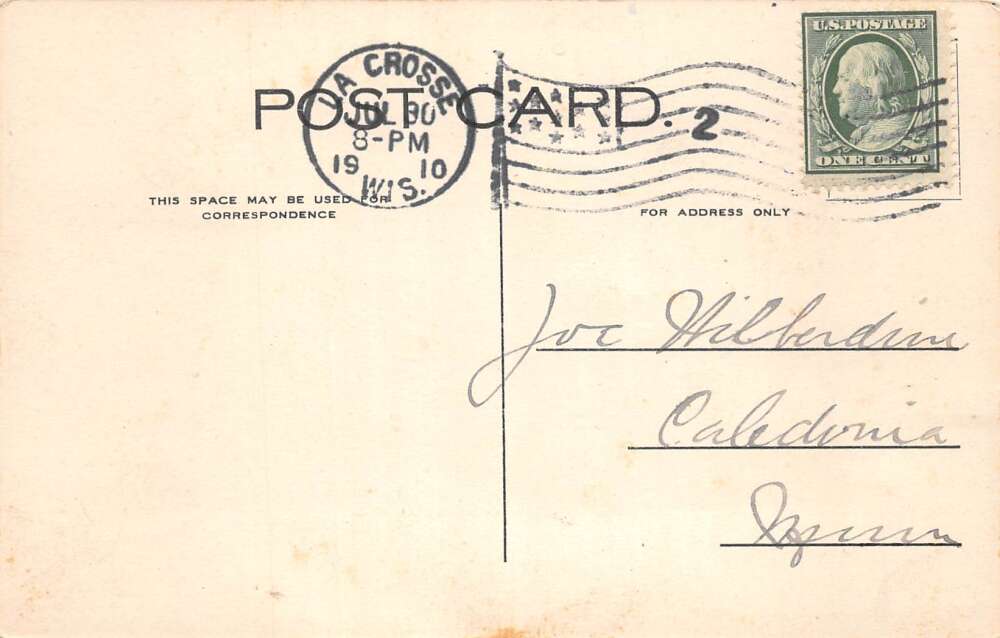 U.S. POSTAGE
ONE CENT
POST CARD.
LA CROSSE
JUL 30
8-PM
19 10
WIS.
2
THIS SPACE MAY BE USED FOR
CORRESPONDENCE
FOR ADDRESS ONLY
Joe Wilberdine
Caledonia
Minn